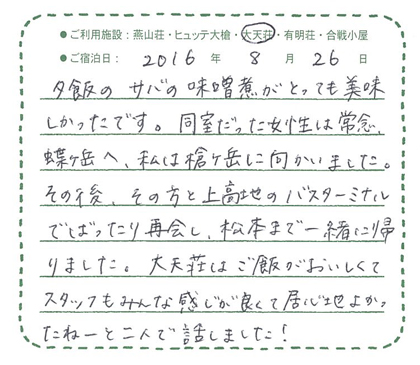 ●ご利用施設：燕山荘・ヒュッテ大槍・大天荘・有明荘・合戦小屋
●ご宿泊日： 2016 年 8 月 26 日
夕飯の サバの 味噌煮がとっても美味
しかったです。同室だった女性は常念、
蝶ヶ岳へ、私は槍ヶ岳に向かいました。
その後、その方と上高地のバスターミナル
でばったり再会し、松本まで一緒に帰
りました。大天荘はご飯がおいしくて
スタッフもみんな感じが良くて居心地よかっ
たねーと二人で話しました！